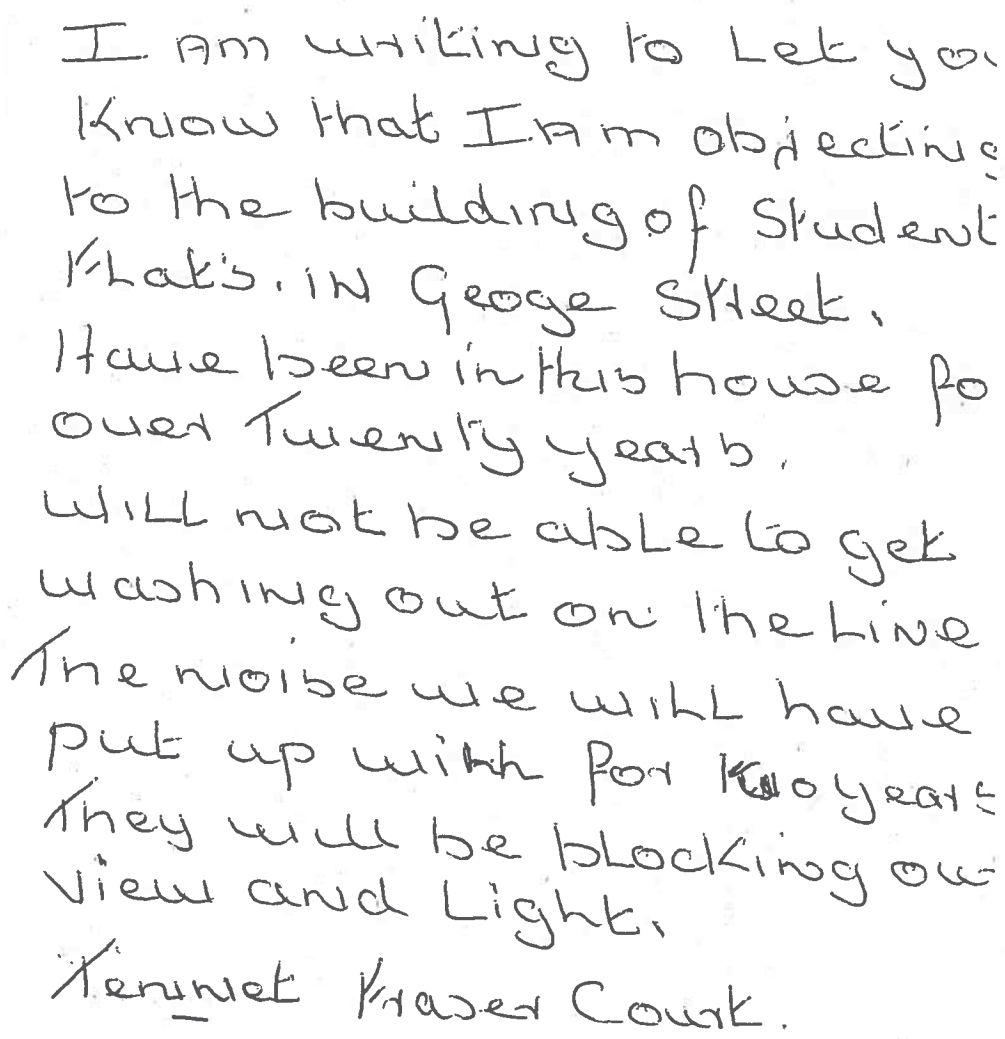 I Am writing to Let you
Know that I Am objecting
to the building of Student
Flat's. IN Geoge Street.
Have been in this house fo
over Twenty years.
WILL not be able to get
washing out on the Line
The noise we will have
put up with for two years
They will be blocking ou
View and Light.
Tennet Fraser Court.